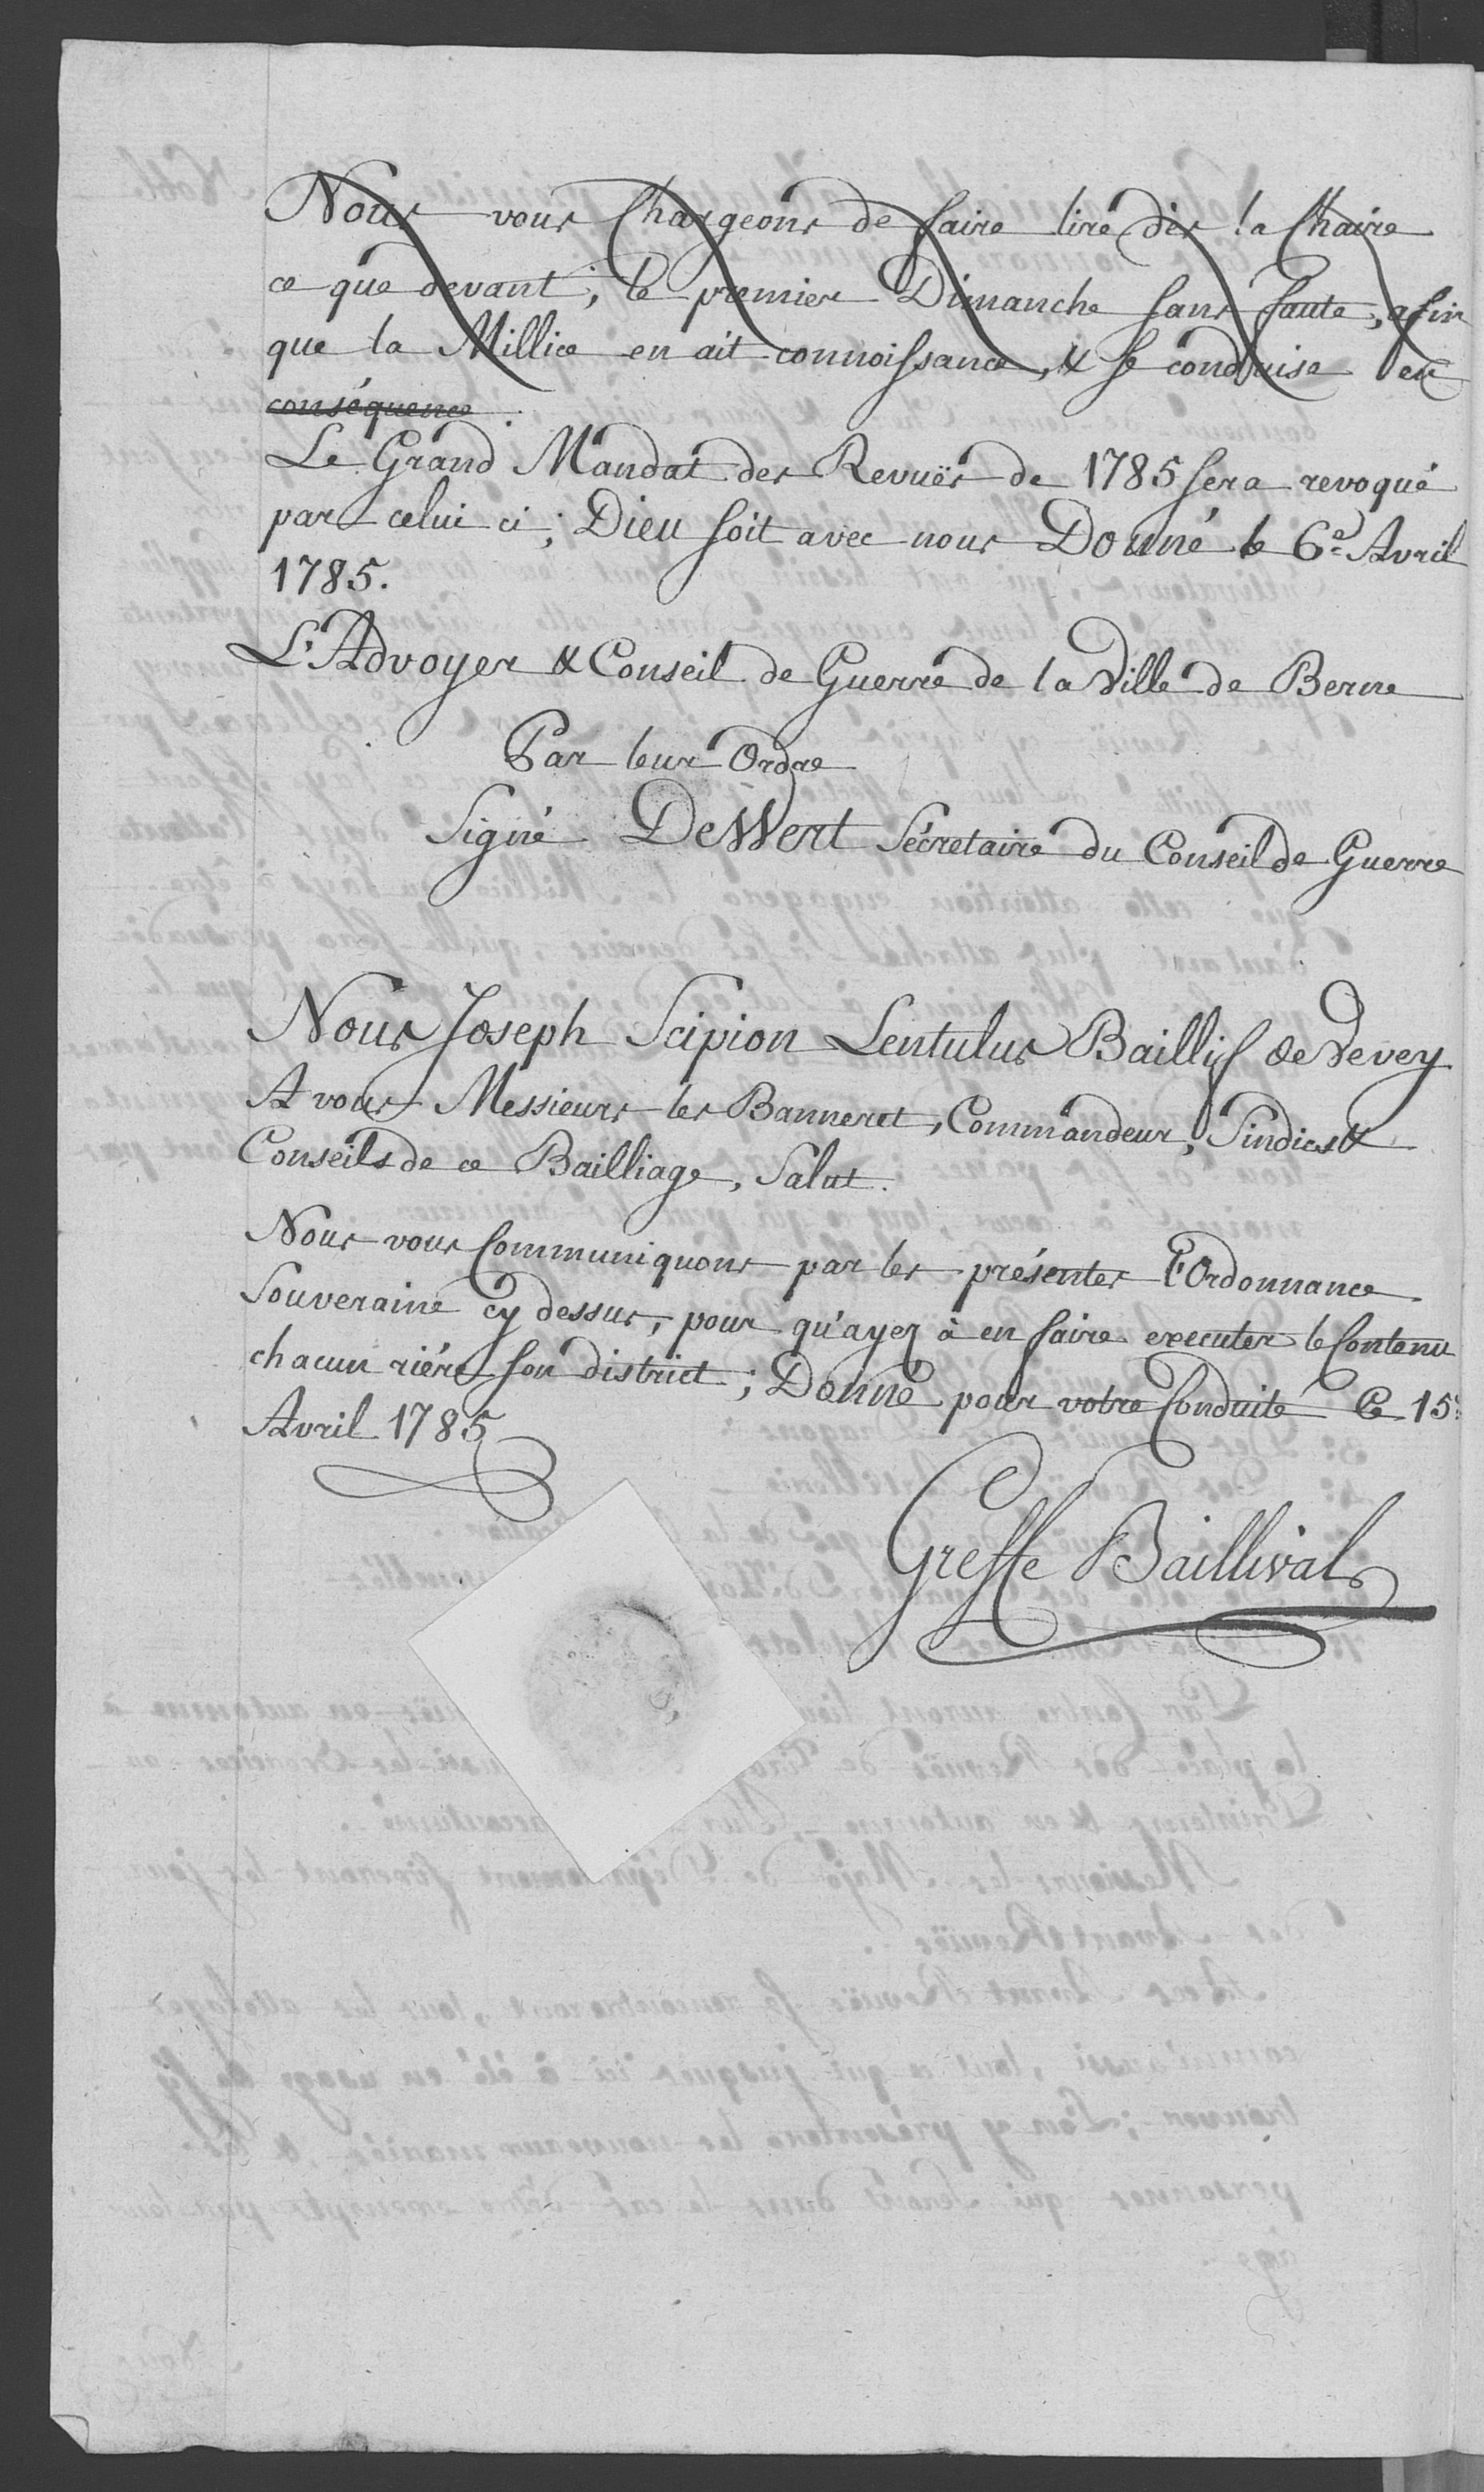 Nous vous Chargeons de faire lire dès la Chaire
ce que devant, le premier Dimanche sans faute, afin
que la Millice en ait connoissance, & se conduise en
conséquence.
Le Grand Mandat des Revuës de 1785 sera revoqué
par celui ci; Dieu soit avec nous Donné le 6e Avril
1785.
L'Advoyer & Conseil de Guerre de la Ville de Berne
Par leur Ordre
Signé DeWert Sécretaire du Conseil de Guerre
Nous Joseph Scipion Lentulus Baillif de Vevey
A vous Messieurs les Banneret, Commandeur, Sindics &
Conseils de ce Bailliage, Salut.
Nous vous Communiquons par les présentes l'Ordonnance
Souveraine cy dessus, pour qu'ayez à en faire executer le Contenu
chacun riére son district; Donné pour votre Conduite Ce 15e
Avril 1785
Greffe Baillival